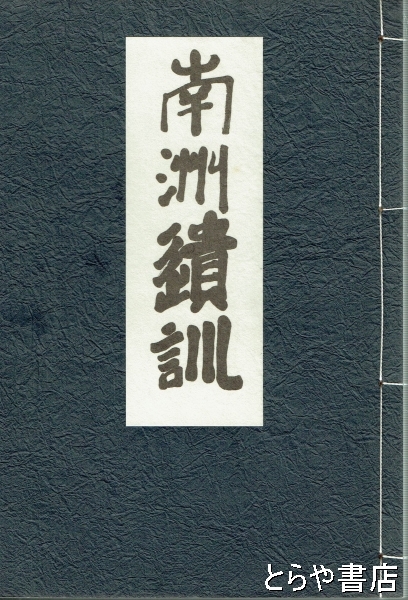 南洲遺訓
とらや書店